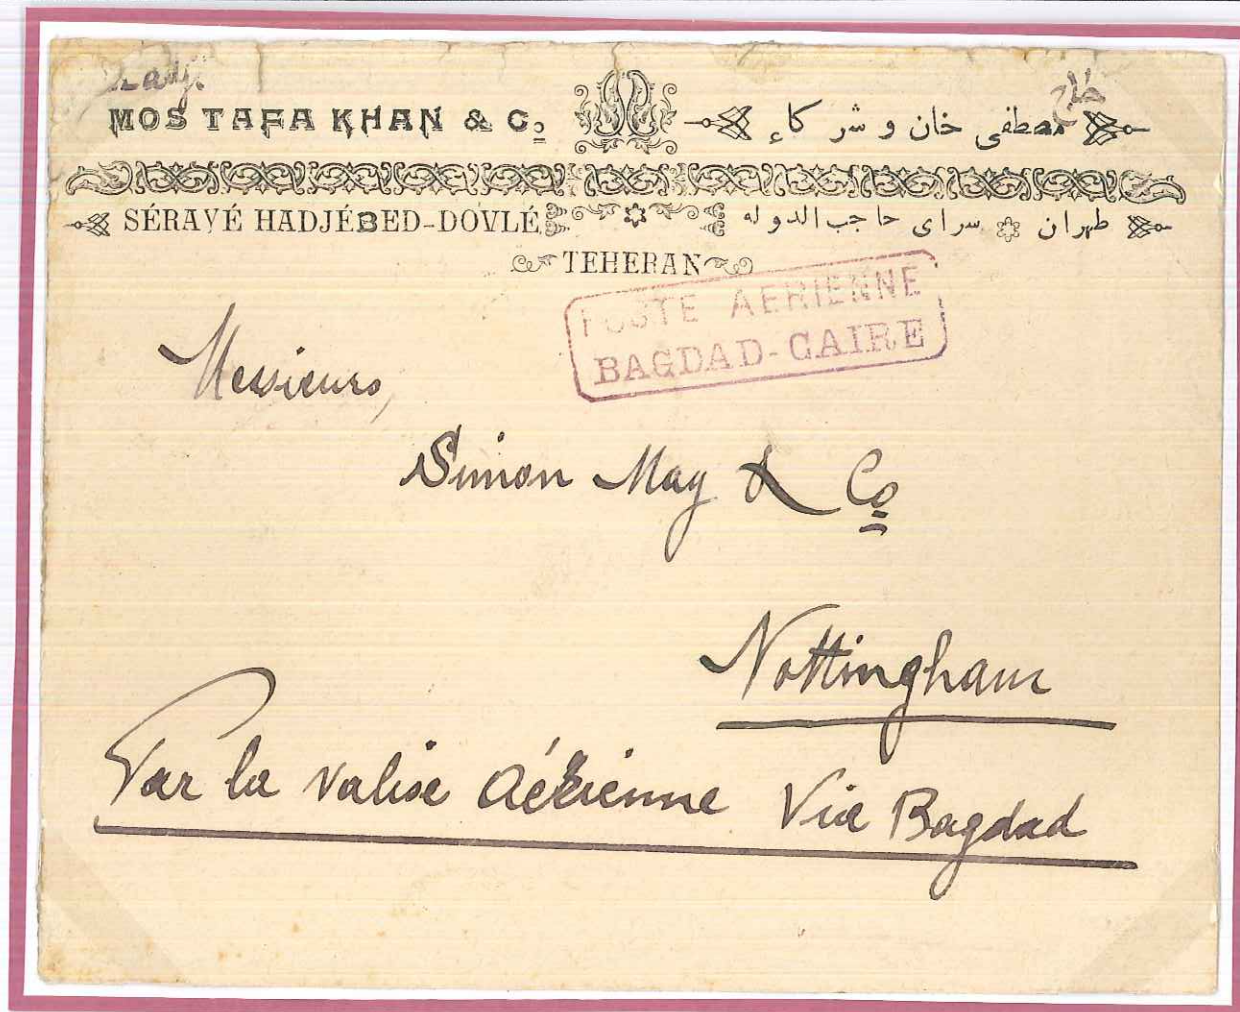 Hadj.
حاج
MOSTAFA KHAN & Co
مصطفی خان و شرکاء
SÉRAYÉ HADJÉBED-DOVLÉ
طهران سرای حاجب الدوله
TEHERAN
POSTE AERIENNE
BAGDAD-CAIRE
Messieurs,
Simon May & Co
Nottingham
Par la valise aérienne Via Bagdad